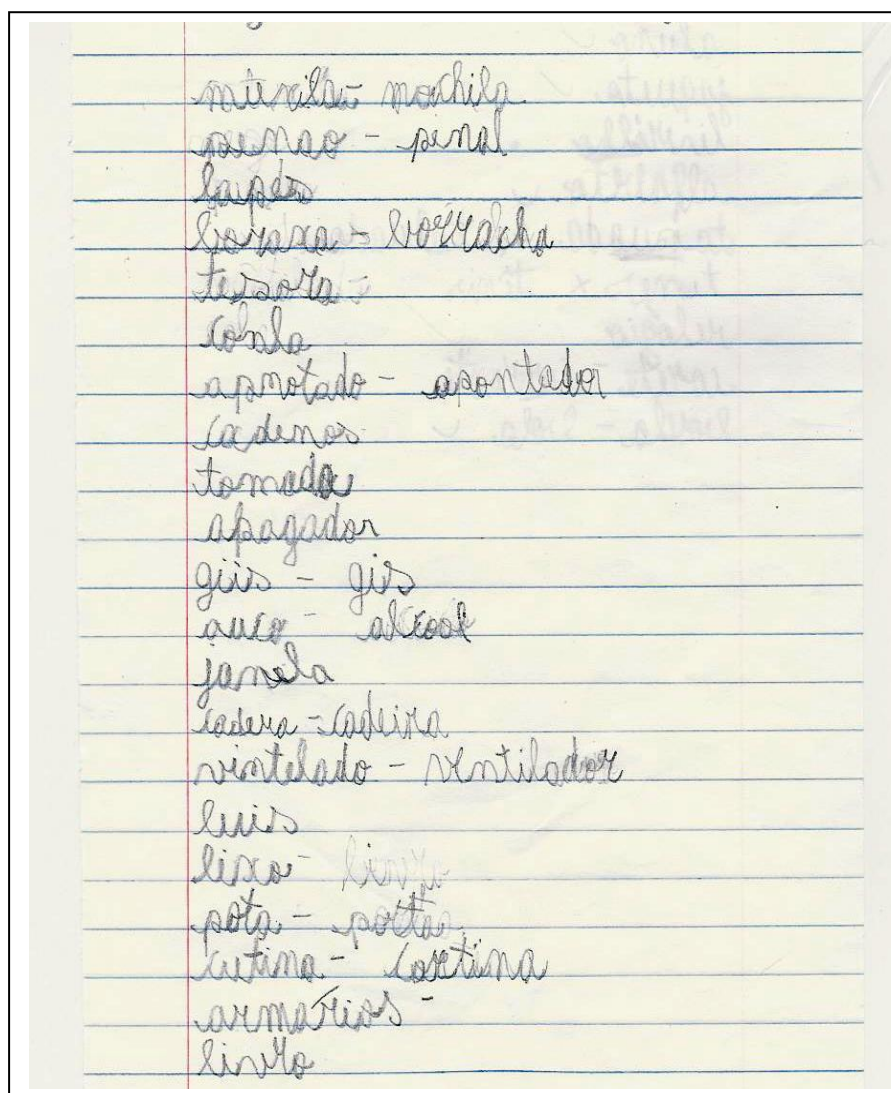 muxila - mochila
penao - penal
lapes
boraxa = borracha
tessora =
cola
apnotado - apontador
cadenos
tomada
apagador
giis - gis
auco - alcool
janela
cadera = cadeira
vintelado - ventilador
luis
lixo -
pota - porta
cutina - cortina
armarios -
livro